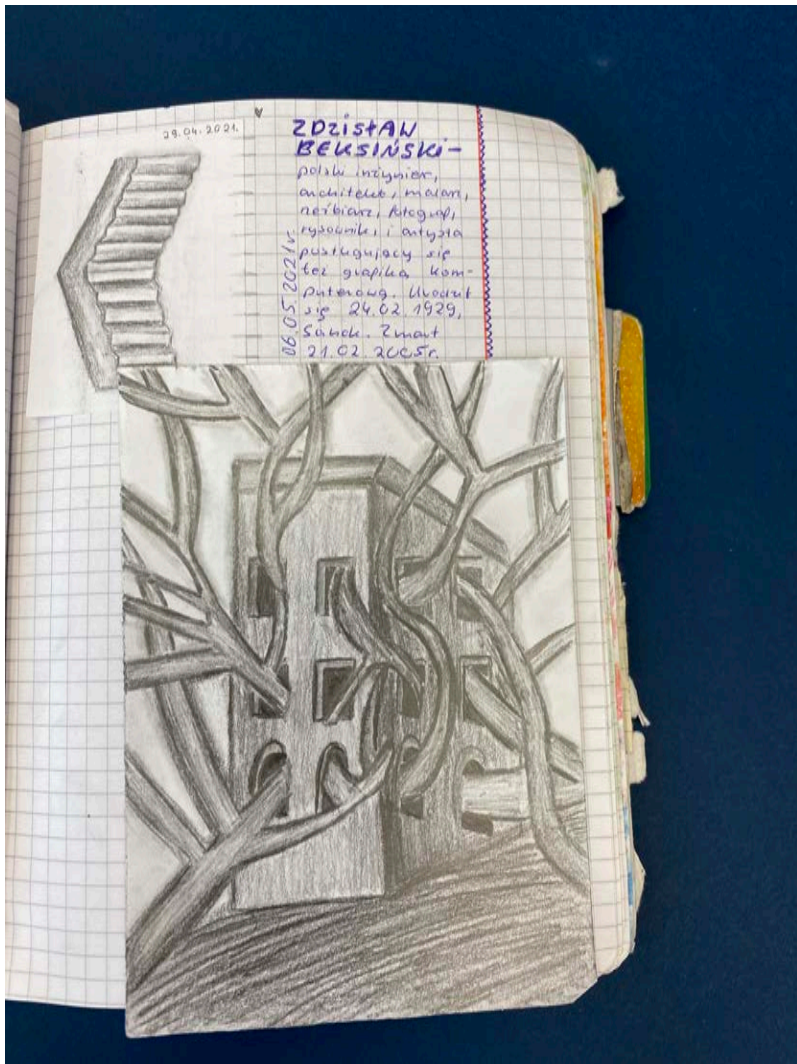 29.04.2021.
ZDZISŁAW
BEKSIŃSKI-
polski inżynier,
architekt, malarz,
rzeźbiarz, fotograf,
rysownik, i artysta
posługujący się
też grafiką kom-
puterową. Urodził
się 24.02.1929,
Sanok. Zmarł
21.02.2005r.
06.05.2021r.